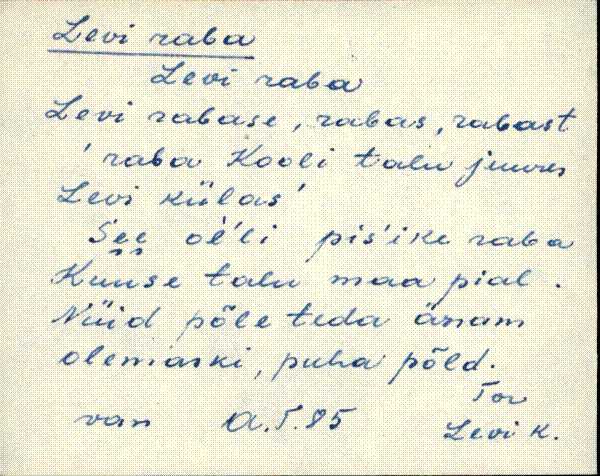 Levi raba
Levi raba
Levi rabase, rabas, rabast
'raba Kooli talu juures
Levi külas'
See oĺ'li piśike raba
Kuuse talu maa pial.
Nüid põle teda änam
olemaski, puha põld.
Tor
van A.T.85
Levi k.